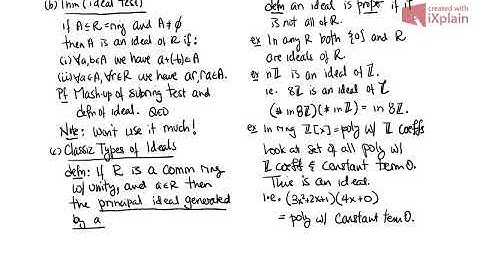 (b) Thm (Ideal Test)
if A⊆R=ring and A≠∅
then A is an ideal of R if:
(i) ∀a,b∈A we have a+(-b)∈A
(ii) ∀a∈A, ∀r∈R we have ar, ra∈A.
Pf Mash-up of subring test and
defn of ideal. QED
Note: Won't use it much!
(c) Classic Types of Ideals
defn: If R is a comm ring
w/unity, and a∈R then
the principal ideal generated
by a
defn An ideal is proper if it
is not all of R.
ex In any R both {0} and R
are ideals of R.
ex nℤ is an ideal of ℤ.
i.e. 8ℤ is an ideal of ℤ
(# in 8ℤ)(# in ℤ) = in 8ℤ.
ex In ring ℤ[x]=poly w/ ℤ coeffs
Look at set of all poly w/
ℤ coeff & constant term 0.
This is an ideal.
i.e. (3x²+2x+1)(4x+0)
= poly w/ constant term 0.
created with
iXplain